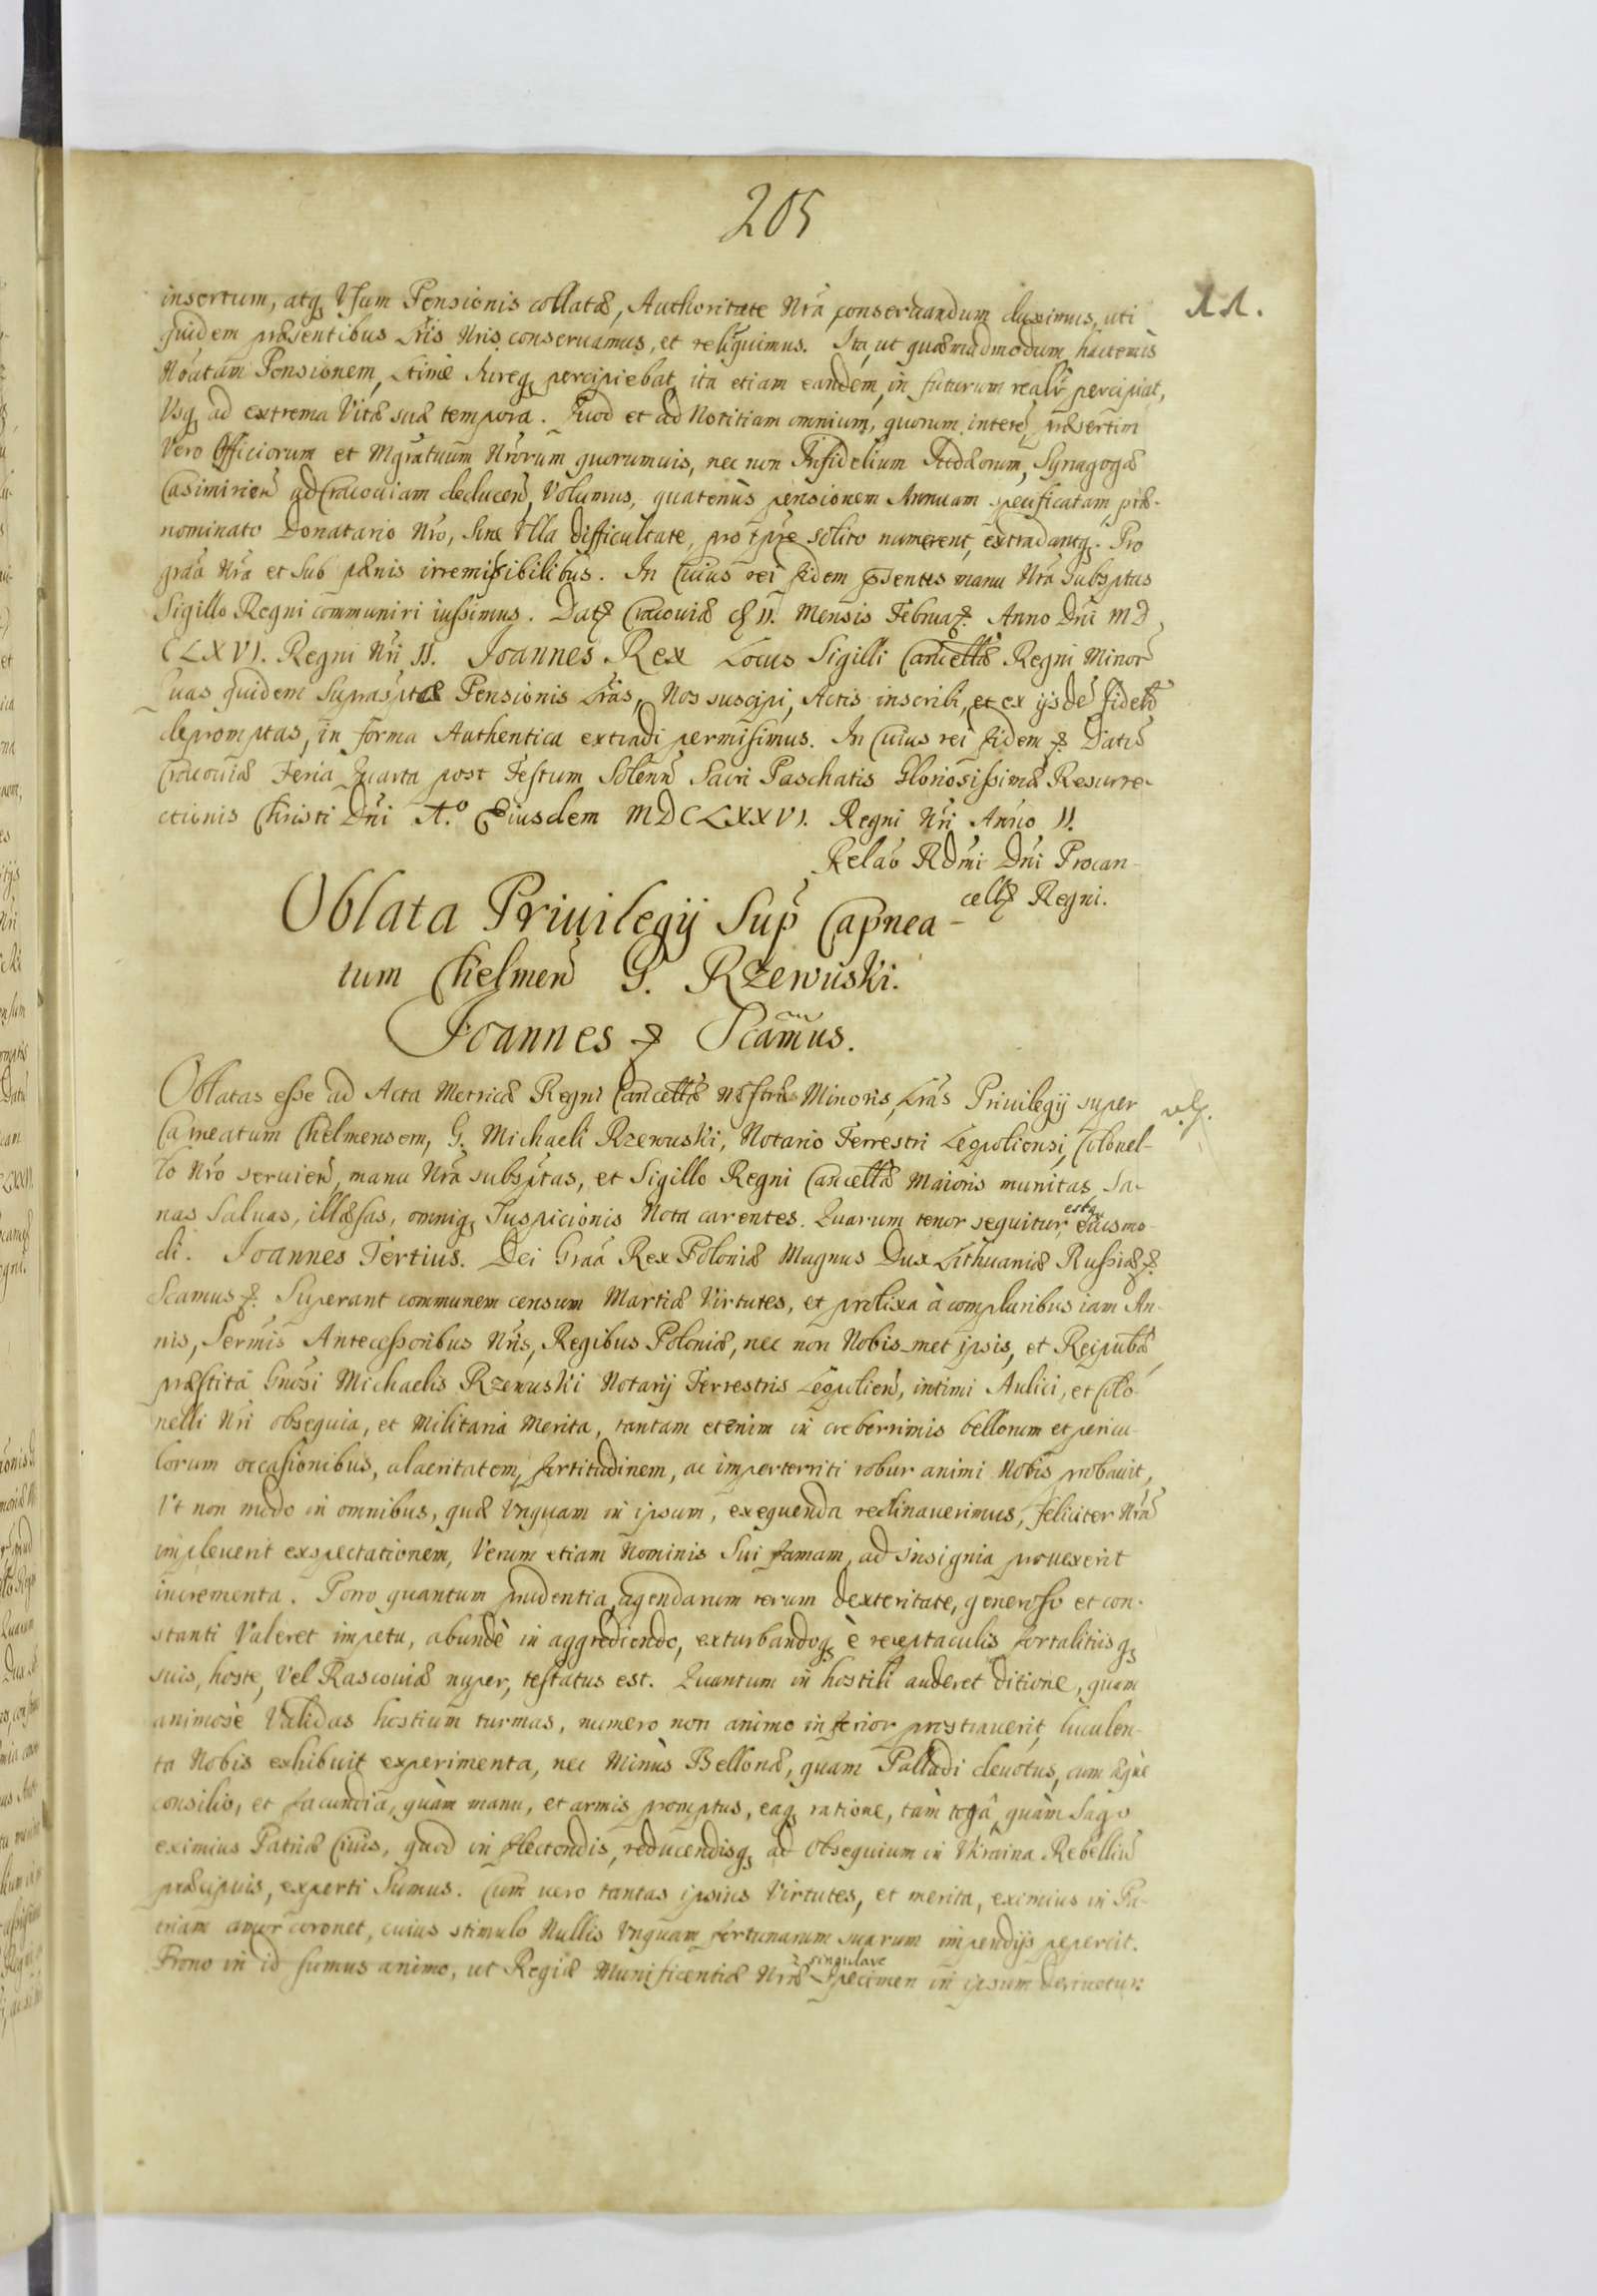 205
insertum, atq₃ Usum Pensionis collatæ, Authoritate Nrã conseruandum duximus, uti
quidem præsentibus Lris Nris conseruamus, et reliquimus. Ita, ut quæmadmodum hactenùs
Notatam Pensionem, Ltimè Iureq₃ percipiebat ita etiam eandem, in futurum realr percipiat,
Usq₃ ad extrema Vitæ suæ tempora. Quod et ad Notitiam omnium, quorum interẽ, præsertim
Vero Officiorum et Mgratuum Nrorum quorumuis, nec non Infidelium Iudæorum, Synagogæ
Casimirieñ ad Cracouiam deduceñ, Volumus, quatenùs pensionem Annuam specificatam præ-
nominato Donatario Nro, Sine Ulla difficultate, pro tpre solito numerent, extradantq₃. Pro
graa Nra et Sub pænis irremissibilibus. In Cuius rei fidem psentes manu Nra Subsptas
Sigillo Regni communiri iussimus. Dat Cracouiæ d II. Mensis Februa. Anno Dni MD
CLXVI. Regni Nri II. Joannes Rex Locus Sigilli Cancellæ Regni Minor
Quas quidem Suprasptæ Pensionis Lras, Nos suscipi, Actis inscribi, et ex ijsdẽ fidelr
depromptas, in forma Authentica extradi permisimus. In Cuius rei fidem Datũ
Cracouiæ Feria Quarta post Festum Solenñ Sacri Paschatis Gloriosissimæ Resurre-
ctionis Christi Dni A.o Eiusdem MDCLXXVI. Regni Nri Anno II.
Relao Rdmi Dni Procan-
cell Regni.
Oblata Priuilegij Sup Capnea-
tum Chelmeñ G. Rzewuski.
Joannes Scamus.
Oblatas esse ad Acta Metricæ Regni Cancellæ Nostræ Minoris, Lras Priuilegij super
Capneatum Chelmensem, G. Michaeli Rzewuski, Notario Terrestri Leopoliensi, Colonel-
lo Nro seruieñ, manu Nra subsptas, et Sigillo Regni Cancellæ Maioris munitas, sa-
nas Saluas, illæsas, omniq₃ Suspicionis Nota carentes. Quarum tenor sequitur, estq₃ eiusmo-
di. Joannes Tertius. Dei Graa Rex Poloniæ Magnus Dux Lithuaniæ Russiæ
Scamus. Superant communem censum Martiæ Virtutes, et prolixa à compluribus iam An-
nis, Sermis Antecessoribus Nris, Regibus Poloniæ, nec non Nobis-met ipsis, et Reipubæ
præstita Gnosi Michaelis Rzewuski Notarij Terrestris Leopolieñ, intimi Aulici, et Colo-
nelli Nri obsequia, et Militaria Merita, tantam etenim in creberrimis bellorum et pericu-
lorum occasionibus, alacritatem, fortitudinem, ac imperterriti robur animi Nobis probauit,
Ut non modo in omnibus, quæ Unquam in ipsum, exequenda reclinauerimus, feliciter Nrã
impleuerit exspectationem, Verum etiam Nominis Sui famam, ad insignia prouexerit
incrementa. Porro quantum prudentia, agendarum rerum dexteritate, generoso et con-
stanti Valeret impetu, abundè in aggrediendo, exturbandoq₃ è receptaculis fortalitiisq₃
suis, hoste, Vel Rascouiæ nuper, testatus est. Quantum in hostili auderet ditione, quam
animosè Validas hostium turmas, numero non animo inferior prostrauerit, luculen-
ta Nobis exhibuit experimenta, nec Minùs Bellonæ, quam Palladi deuotus, cum æquè
consilio, et facundia, quàm manu, et armis promptus, eaq₃ ratione, tàm togâ, quàm Sago
eximius Patriæ Ciuis, quod in flectendis, reducendisq₃ ad Obsequium in Ukraina Rebelliũ
præcipuis, experti Sumus. Cum uero tantas ipsius Virtutes, et merita, eximius in Pa-
triam amor coronet, cuius stimulo Nullis Unquam fortunarum suarum impendijs pepercit.
Prono in id sumus animo, ut Regiæ Munificentiæ Nræ singulare Specimen in ipsum deriuetur: